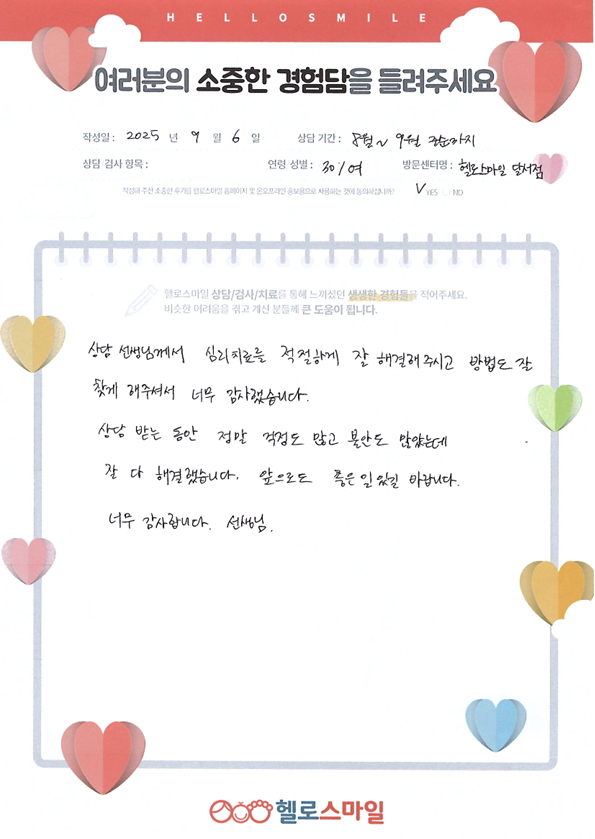 HELLOSMILE
여러분의 소중한 경험담을 들려주세요
작성일 : 2025 년 9 월 6 일 상담 기간 : 8월~ 9월 까지
상담 검사 항목 : 연령 성별 : 30/여 방문센터명 : 헬로스마일 달서점
작성해 주신 소중한 후기를 헬로스마일 홈페이지 및 온오프라인 홍보용으로 사용하는 것에 동의하십니까? V YES NO
헬로스마일 상담/검사/치료를 통해 느끼셨던 생생한 경험들을 적어주세요.
비슷한 어려움을 겪고 계신 분들께 큰 도움이 됩니다.
상담 선생님께서 심리치료를 적절하게 잘 해결해주시고 방법도 잘
찾게 해주셔서 너무 감사했습니다.
상담 받는 동안 정말 걱정도 많고 불안도 많았는데
잘 다 해결했습니다. 앞으로도 좋은 일 있길 바랍니다.
너무 감사합니다. 선생님.
헬로스마일